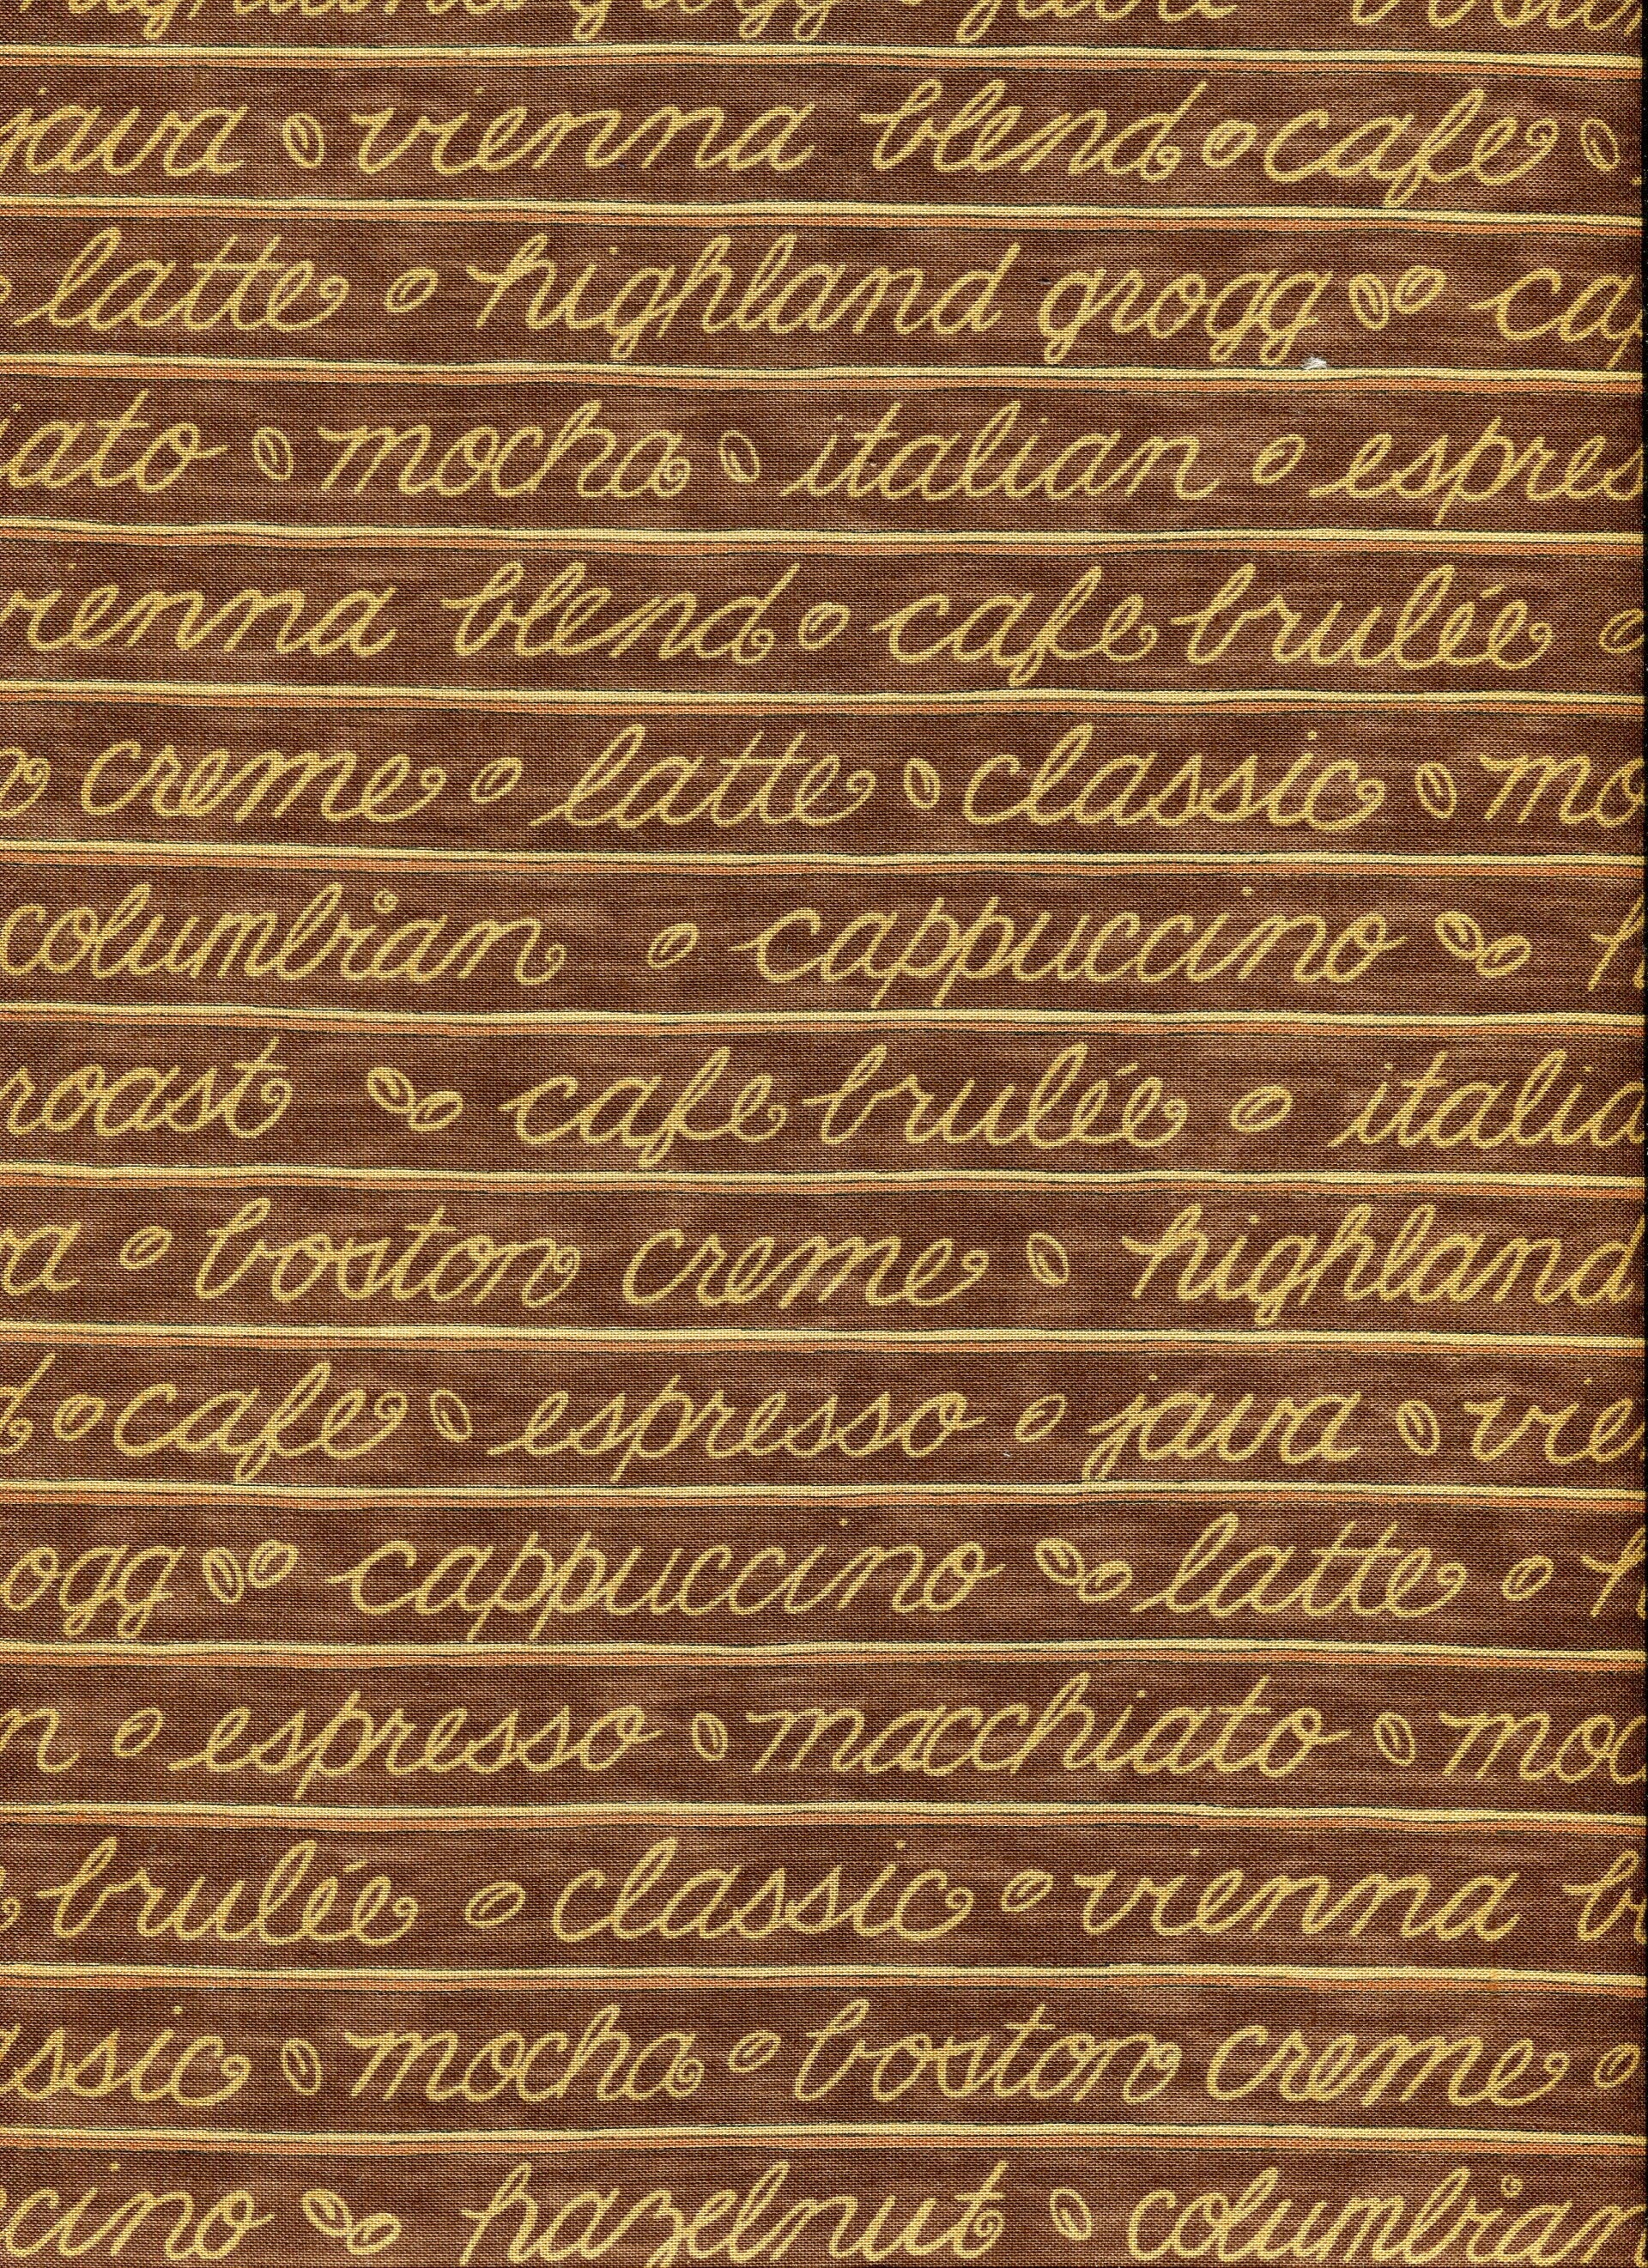 highland grogg java boston
java vienna blend cafe
latte highland grogg cap
iato mocha italian espres
vienna blend cafe brulée
creme latte classic mo
columbian cappuccino h
roast cafe brulée italia
a boston creme highland
d cafe espresso java vie
ogg cappuccino latte h
n espresso macchiato moc
brulée classic vienna b
ssic mocha boston creme
cino hazelnut columbian